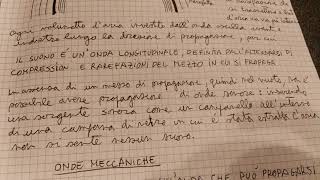 ogni volumetto d'aria investito dall'onda oscilla
indietro lungo la direzione di propagazione, per cui
IL SUONO È UN'ONDA LONGITUDINALE, DEFINITA DALL'ALTERNARSI DI
COMPRESSIONI E RAREFAZIONI DEL MEZZO IN CUI SI PROPAGA
In assenza di un mezzo di propagazione, quindi nel vuoto, non è
possibile avere propagazione di onde sonore:
una sorgente sonora come un campanello all'interno
di una campana di vetro in cui è stata estratta l'aria
non si sente nessun suono.
ONDE MECCANICHE
CHE PUÒ PROPAGARSI